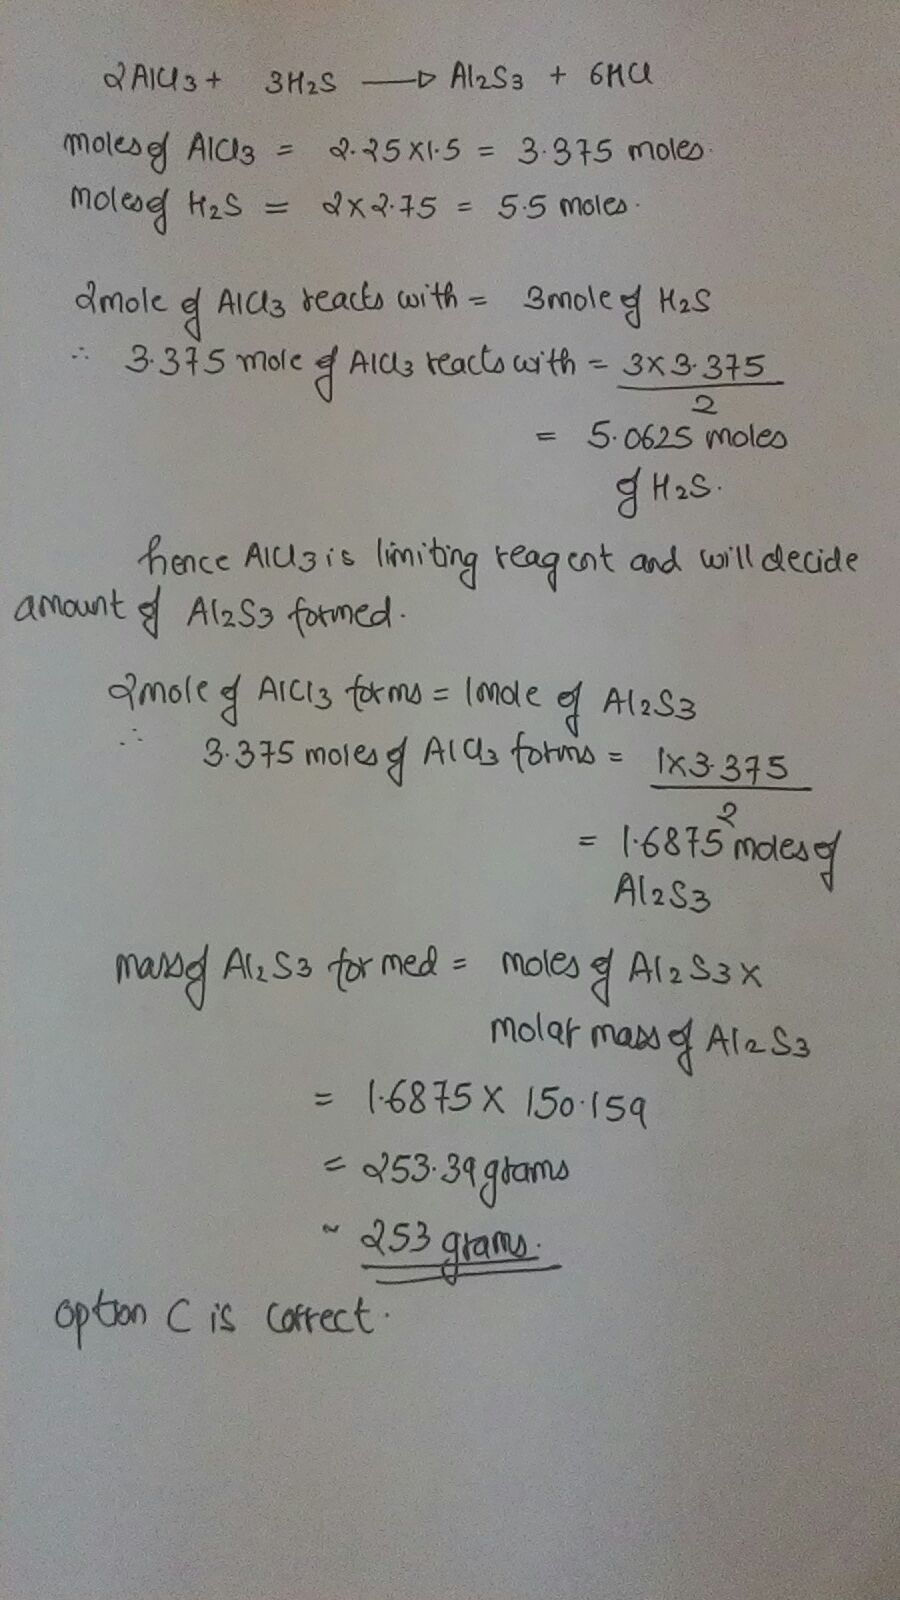 2AlCl3 + 3H2S → Al2S3 + 6HCl
moles of AlCl3 = 2.25 x 1.5 = 3.375 moles.
Moles of H2S = 2 x 2.75 = 5.5 moles.
2mole of AlCl3 reacts with = 3mole of H2S
∴ 3.375 mole of AlCl3 reacts with = 3 x 3.375
2
= 5.0625 moles
of H2S.
hence AlCl3 is limiting reagent and will decide
amount of Al2S3 formed.
2mole of AlCl3 forms = 1mole of Al2S3
∴ 3.375 moles of AlCl3 forms = 1 x 3.375
2
= 1.6875 moles of
Al2S3
mass of Al2S3 formed = moles of Al2S3 x
molar mass of Al2S3
= 1.6875 x 150.159
= 253.39 grams
~ 253 grams.
option C is correct.